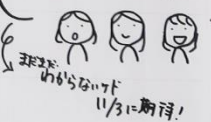 まだまだ
わからないケド
11/3に期待!